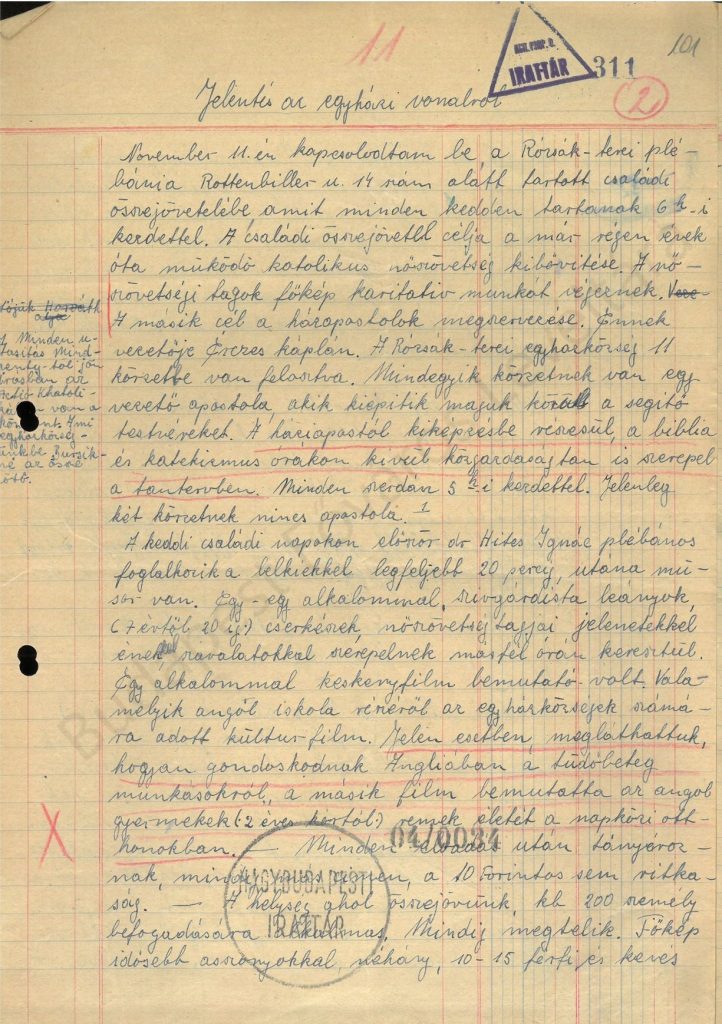 11
101
KÖZP. P. B.
IRATTÁR
311
2
Jelentés az egyházi vonalról
November 11.-én kapcsolódtam be a Rózsák-terei plé-
bánia Rottenbiller u. 14 szám alatt tartott családi
összejövetelébe, amit minden kedden tartanak 6h-i
kezdettel. A családi összejövetel célja a már régen évek
óta működő katolikus nőszövetség kibővítése. A nő-
szövetségi tagok főkép karitativ munkát végeznek.
A másik cél a háziapostolok megszervezése. Ennek
vezetője Érczes káplán. A Rózsák-terei egyházközség 11
körzetre van felosztva. Mindegyik körzetnek van egy
vezető apostola, akik kiépitik maguk körül a segitő
testvéreket. A háziapostol kiképzésbe részesül, a biblia
és katekizmus órákon kivül közgazdaságtan is szerepel
a tantervben. Minden szerdán 5h-i kezdettel. Jelenleg
két körzetnek nincs apostola. 1
Horváth
1 Minden u-
tasitás Mind-
szenty-től jön
A keddi családi napokon először dr Hites Ignác plébános
foglalkozik a lelkiekkel legfeljebb 20 percig, utána mű-
sor van. Egy-egy alkalommal, szivgárdista leányok,
(7 évtől 20 ig) cserkészek, nőszövetség tagjai jelenetekkel
énekkel szavalatokkal szerepelnek másfél órán keresztül.
Egy alkalommal keskenyfilm bemutató volt. Vala-
melyik angol iskola részéről az egyházközségek számá-
ra adott kulturfilm. Jelen esetben megláthattuk,
hogyan gondoskodnak Angliában a tüdőbeteg
munkásokról, a másik film bemutatta az angol
gyermekek (2 éves kortól) remek életét a napközi ott-
honokban. — Minden előadás után tányéroz-
nak, minden, a 10 forintos sem ritka-
ság. — A helység ahol összejövünk, kb 200 személy
befogadására alkalmas. Mindig megtelik. Főkép
idősebb asszonyokkal, néhány, 10-15 férfi és kevés
04/0034
NAGYBUDAPESTI
IRATTÁR